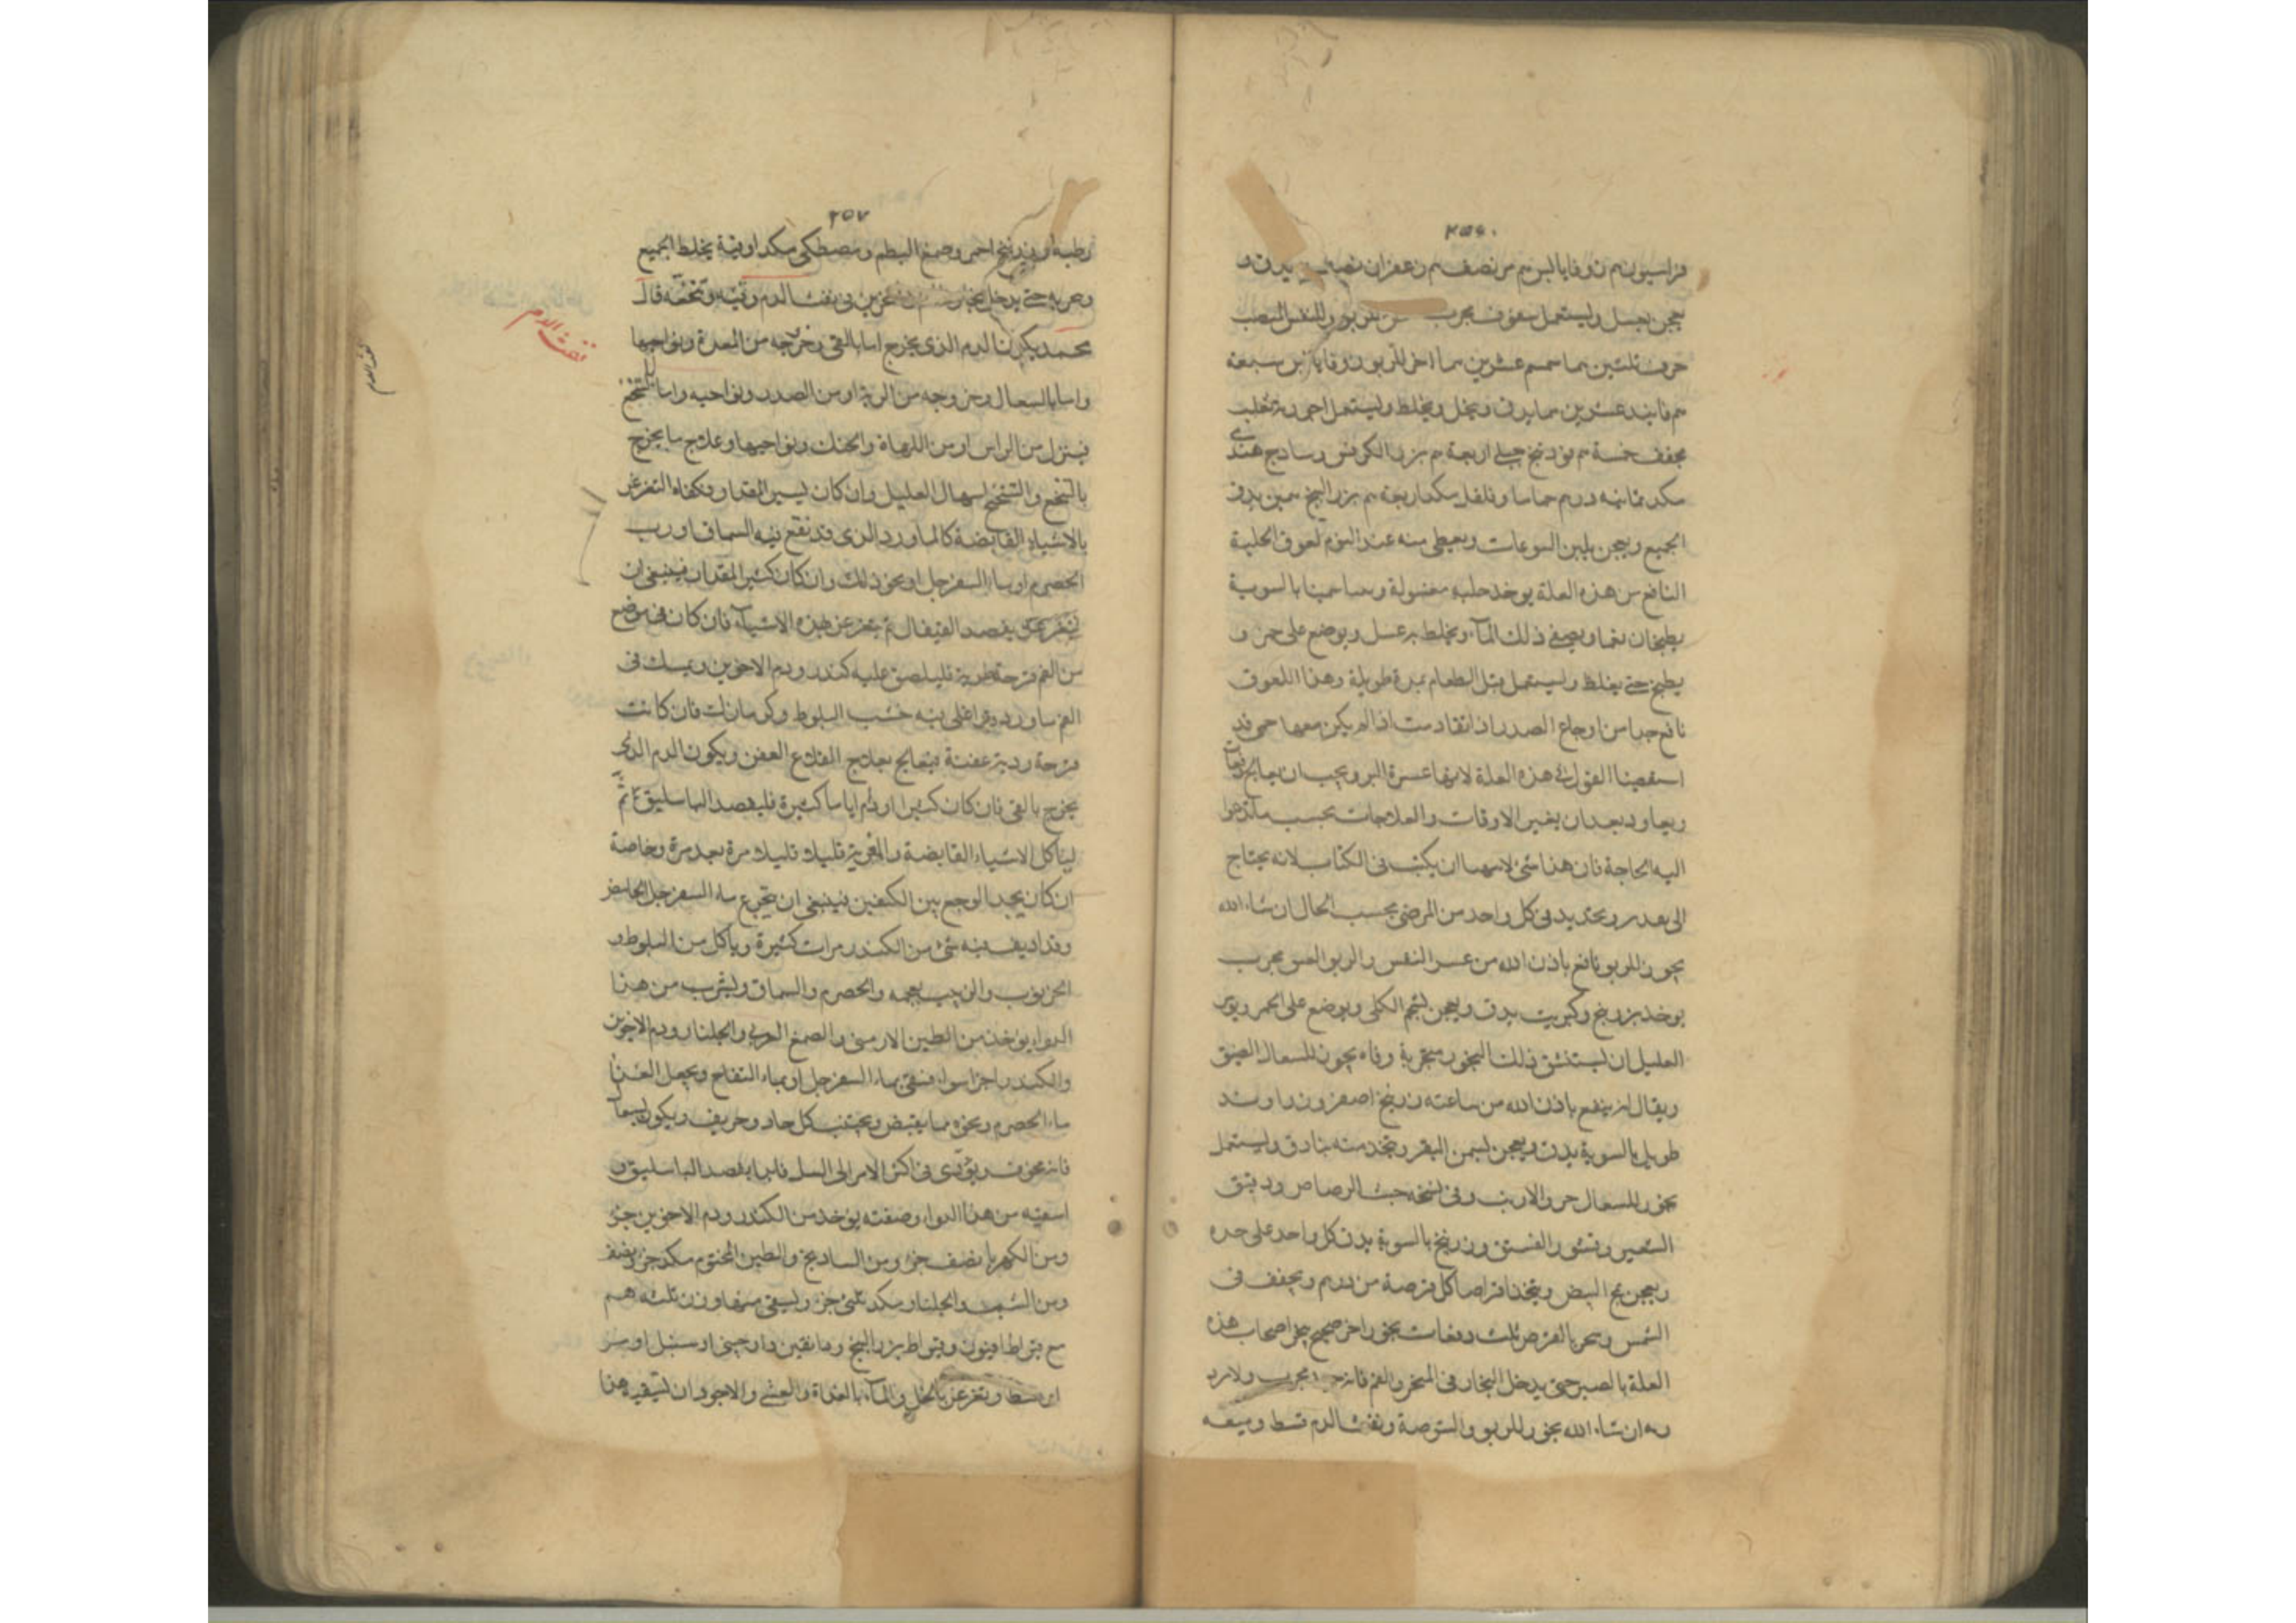 ٢٥٦
فراسيون م زوفا يابس م م نصف م زعفران نصف يدق و
يعجن بعسل ويستعمل سفوف مجرب للربو والنفس الصعب
حرف ثلثين سما سمسم عشرين سما اخر للربو زوفا يابس سبعة
م فانيد عشرين سما يدق وينخل ويخلط ويستعمل اخر رية ثعلب
مجفف خمسة م فودنج جبلي اربعة م بزر الكرفس وساذج هندي
مكد ثمانية درم حماما وفلفل مكد اربعة م بزر البنج سمين يدق
الجميع ويعجن بلبن السوعات ويعطى منه عند النوم لعوق الحلبة
النافع من هذه العلة يوخذ حلبه مغسولة وعسا سمينا بالسوية
يطبخان نعما ويصفى ذلك المآء ويخلط به عسل ويوضع على جمر و
يطبخ حتى يغلظ ويستعمل قبل الطعام بمدة طويلة وهذا اللعوق
نافع جدا من اوجاع الصدر اذا تقادمت اذا لم يكن معها حمى قد
استقصينا القول في هذه العلة لانها عسرة البرو ويجب ان يعالج دفعات
ويعاود بعد ان يغير الاوقات والعلاجات بحسب ما تدعوا
اليه الحاجة فان هذا شئ لا يمكن ان يكتب فى الكتاب لانه يحتاج
الى تقدير وتحديد فى كل واحد من المرضى بحسب الحال ان شاء الله
بخور للربو نافع باذن الله من عسر النفس والربو العسو مجرب
يوخذ زرنيخ وكبريت يدق ويعجن بشحم الكلى ويوضع على الجمر ويومر
العليل ان يستنشق ذلك البخور منخريه وفاه بخور للسعال العتيق
ويقال انه ينفع باذن الله من ساعته زرنيخ اصفر زراوند
طويل بالسوية يدق ويعجن بسمن البقر ويتخذ منه بنادق ويستعمل
بخور للسعال خرو الارنب وفى نسخه خبث الرصاص ودقيق
الشعير وقشور الفستق وزرنيخ بالسوية يدق كل واحد على حده
ويعجن بمح البيض ويتخذ اقراصا كل قرصة من درهم ويجفف فى
الشمس ويبخر بالقرص ثلث دفعات بخور اخر صحيح يبخر اصحاب هذه
العلة بالصبر حتى يدخل البخار فى المنخر والفم فانه جيد مجرب ولا يرد
به ان شاء الله بخور للربو والشوصة ونفث الدم قسط وميعه
٢٥٧
رطبه وزرنيخ احمر وصمغ البطم ومصطكى مكد اوقية يخلط الجميع
ويبخر به حتى يدخل بخاره المنخرين فى نفث الدم وقيئه وتنخعه قال
محمد يكون الدم الذى يخرج اما بالقى وخروجه من المعدة ونواحيها
واما بالسعال وخروجه من الرية او من الصدر ونواحيه واما بالتنخع
فينزل من الراس او من اللهاة والحنك ونواحيها وعلاج ما يخرج
بالتنخع والتنخنح اسهال العليل وان كان يسير المقدار وكفاه التغرغر
بالاشياء القابضة كالماورد الذى قد نقع فيه السماق او رب
الحصرم او ماء السفرجل او نحو ذلك وان كان كثير المقدار فينبغى ان
يفصد القيفال ثم يتغرغر بهذه الاشيآء فان كان فى موضع
من الفم قرحة طرية فليلصق عليه كندر ودم الاخوين ويمسك فى
الفم ماورد وقد اغلى فيه خشب البلوط وكزمازك فان كانت
قرحة ردية عفنة فيعالج بعلاج القلاع العفن ويكون الدم الذى
يخرج بالقى فان كان كثيرا ودام اياما كثيرة فليفصد الباسليق ثم
لياكل الاشياء القابضة والمغرية قليلا قليلا مرة بعد مرة وخاصة
ان كان يجد الوجع بين الكتفين فينبغى ان يتجرع ماء السفرجل الحامض
وقد اديف فيه شئ من الكندر مرات كثيرة وياكل من البلوط و
الخرنوب والزبيب بعجمه والحصرم والسماق ويشرب من هذا
الدواء يوخذ من الطين الارمنى والصمغ العربى والجلنار ودم الاخوين
والكندر اجزا سواء فيسقى بماء السفرجل او بماء التفاح ويجعل الغذا
ماء الحصرم ونحوه مما يقبض ويجتنب كل حاد وحريف ويكون بالسعال
فانه مخوف ويؤدى فى اكثر الامر الى السل فابدا بفصد الباسليق و
اسقيه من هذا الدواء وصفته يوخذ من الكندر ودم الاخوين جز
ومن الكهربا نصف جز ومن الساذنج والطين المختوم مكد جز ونصف
ومن الشب والجلنار مكد ثلثى جز ويسقى منها وزن ثلثه هم
مع قيراط افيون وقيراط بزر البنج ودانقين دارچينى او سنبل او
او قسط وتغرغر بالخل والمآء بالغداة والعشى والاجود ان تسقيه هذا
نفث الدم
نفث الدم